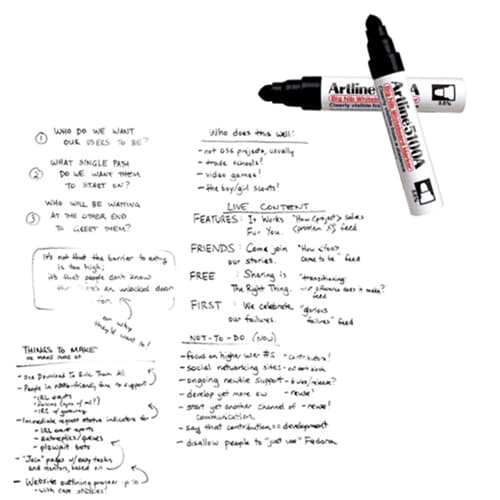 Artline
Big Nib Whiteboard
Clearly visible from
Artline5100A
Big Nib Whiteboard Marker
① WHO DO WE WANT
OUR USERS TO BE?
② WHAT SINGLE PATH
DO WE WANT THEM
TO START ON?
③ WHO WILL BE WAITING
AT THE OTHER END
TO GREET THEM?
It's not that the barrier to entry
is too high;
it's that people don't know
an unlocked door
or why
they'd want to!
THINGS TO MAKE
OR MAKE MORE OF
- One Download To Rule Them All
- People in friendly, fame to support
- IRL events
- IRL of gateway
- Immediate request status indicators for
- IRL event reports
- autoreplies/queues
- "Join" pages w/ easy tasks
and mentors, based on
- Website outlining project
- with case studies!
Who does this well:
- not OSS projects, usually
- trade schools!
- video games!
- the boy/girl scouts!
LIVE CONTENT
FEATURES: It Works "How <project> solves
For You. <problem X>" feed
FRIENDS: Come join "How <foo>
our stories. came to be" feed
FREE : Sharing is "transitioning:
The Right Thing. difference does it make?"
feed
FIRST : We celebrate "glorious
our failures. failures" feed
NOT-TO-DO (NOW)
- focus on higher user #s - contributors!
- social networking sites
- ongoing newbie support - 6 wks/release?
- develop yet more sw - reuse!
- start yet another channel of - reuse!
communication
- say that contribution == development
- disallow people to "just use" Fedora